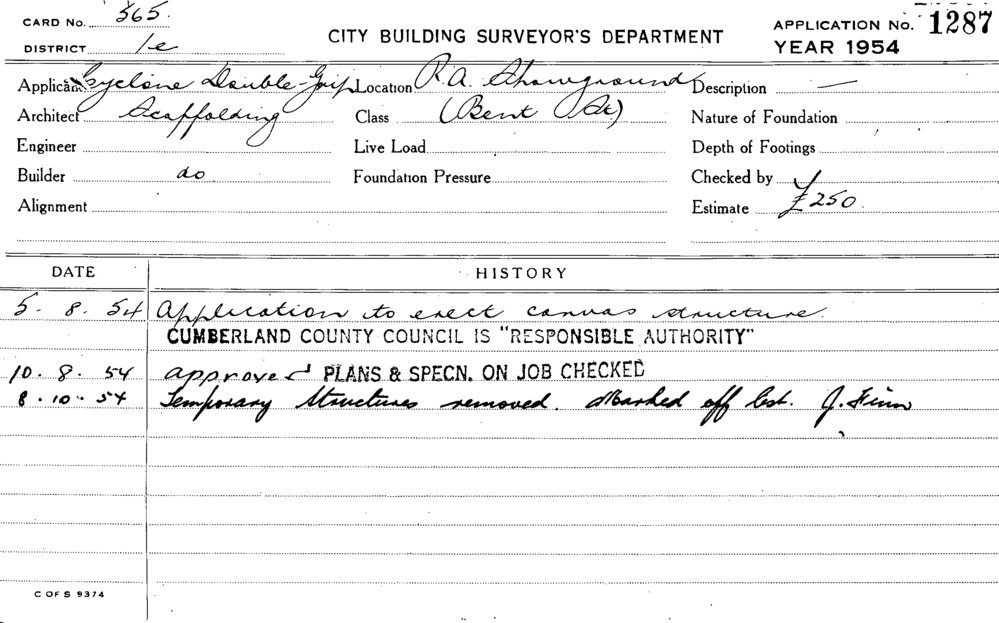 CARD No. 365.
DISTRICT 1e
CITY BUILDING SURVEYOR'S DEPARTMENT
APPLICATION No. 1287
YEAR 1954
Applicant Cyclone Double-Grip Location R.A. Showground Description —
Architect Scaffolding Class (Bent St) Nature of Foundation
Engineer Live Load Depth of Footings
Builder do Foundation Pressure Checked by
Alignment Estimate £250.
DATE HISTORY
5. 8. 54 Application to erect canvas structure
CUMBERLAND COUNTY COUNCIL IS "RESPONSIBLE AUTHORITY"
10. 8. 54 approved PLANS & SPECN. ON JOB CHECKED
8. 10. 54 Temporary Structures removed. Marked off list. J. Finn
C OF S 9374